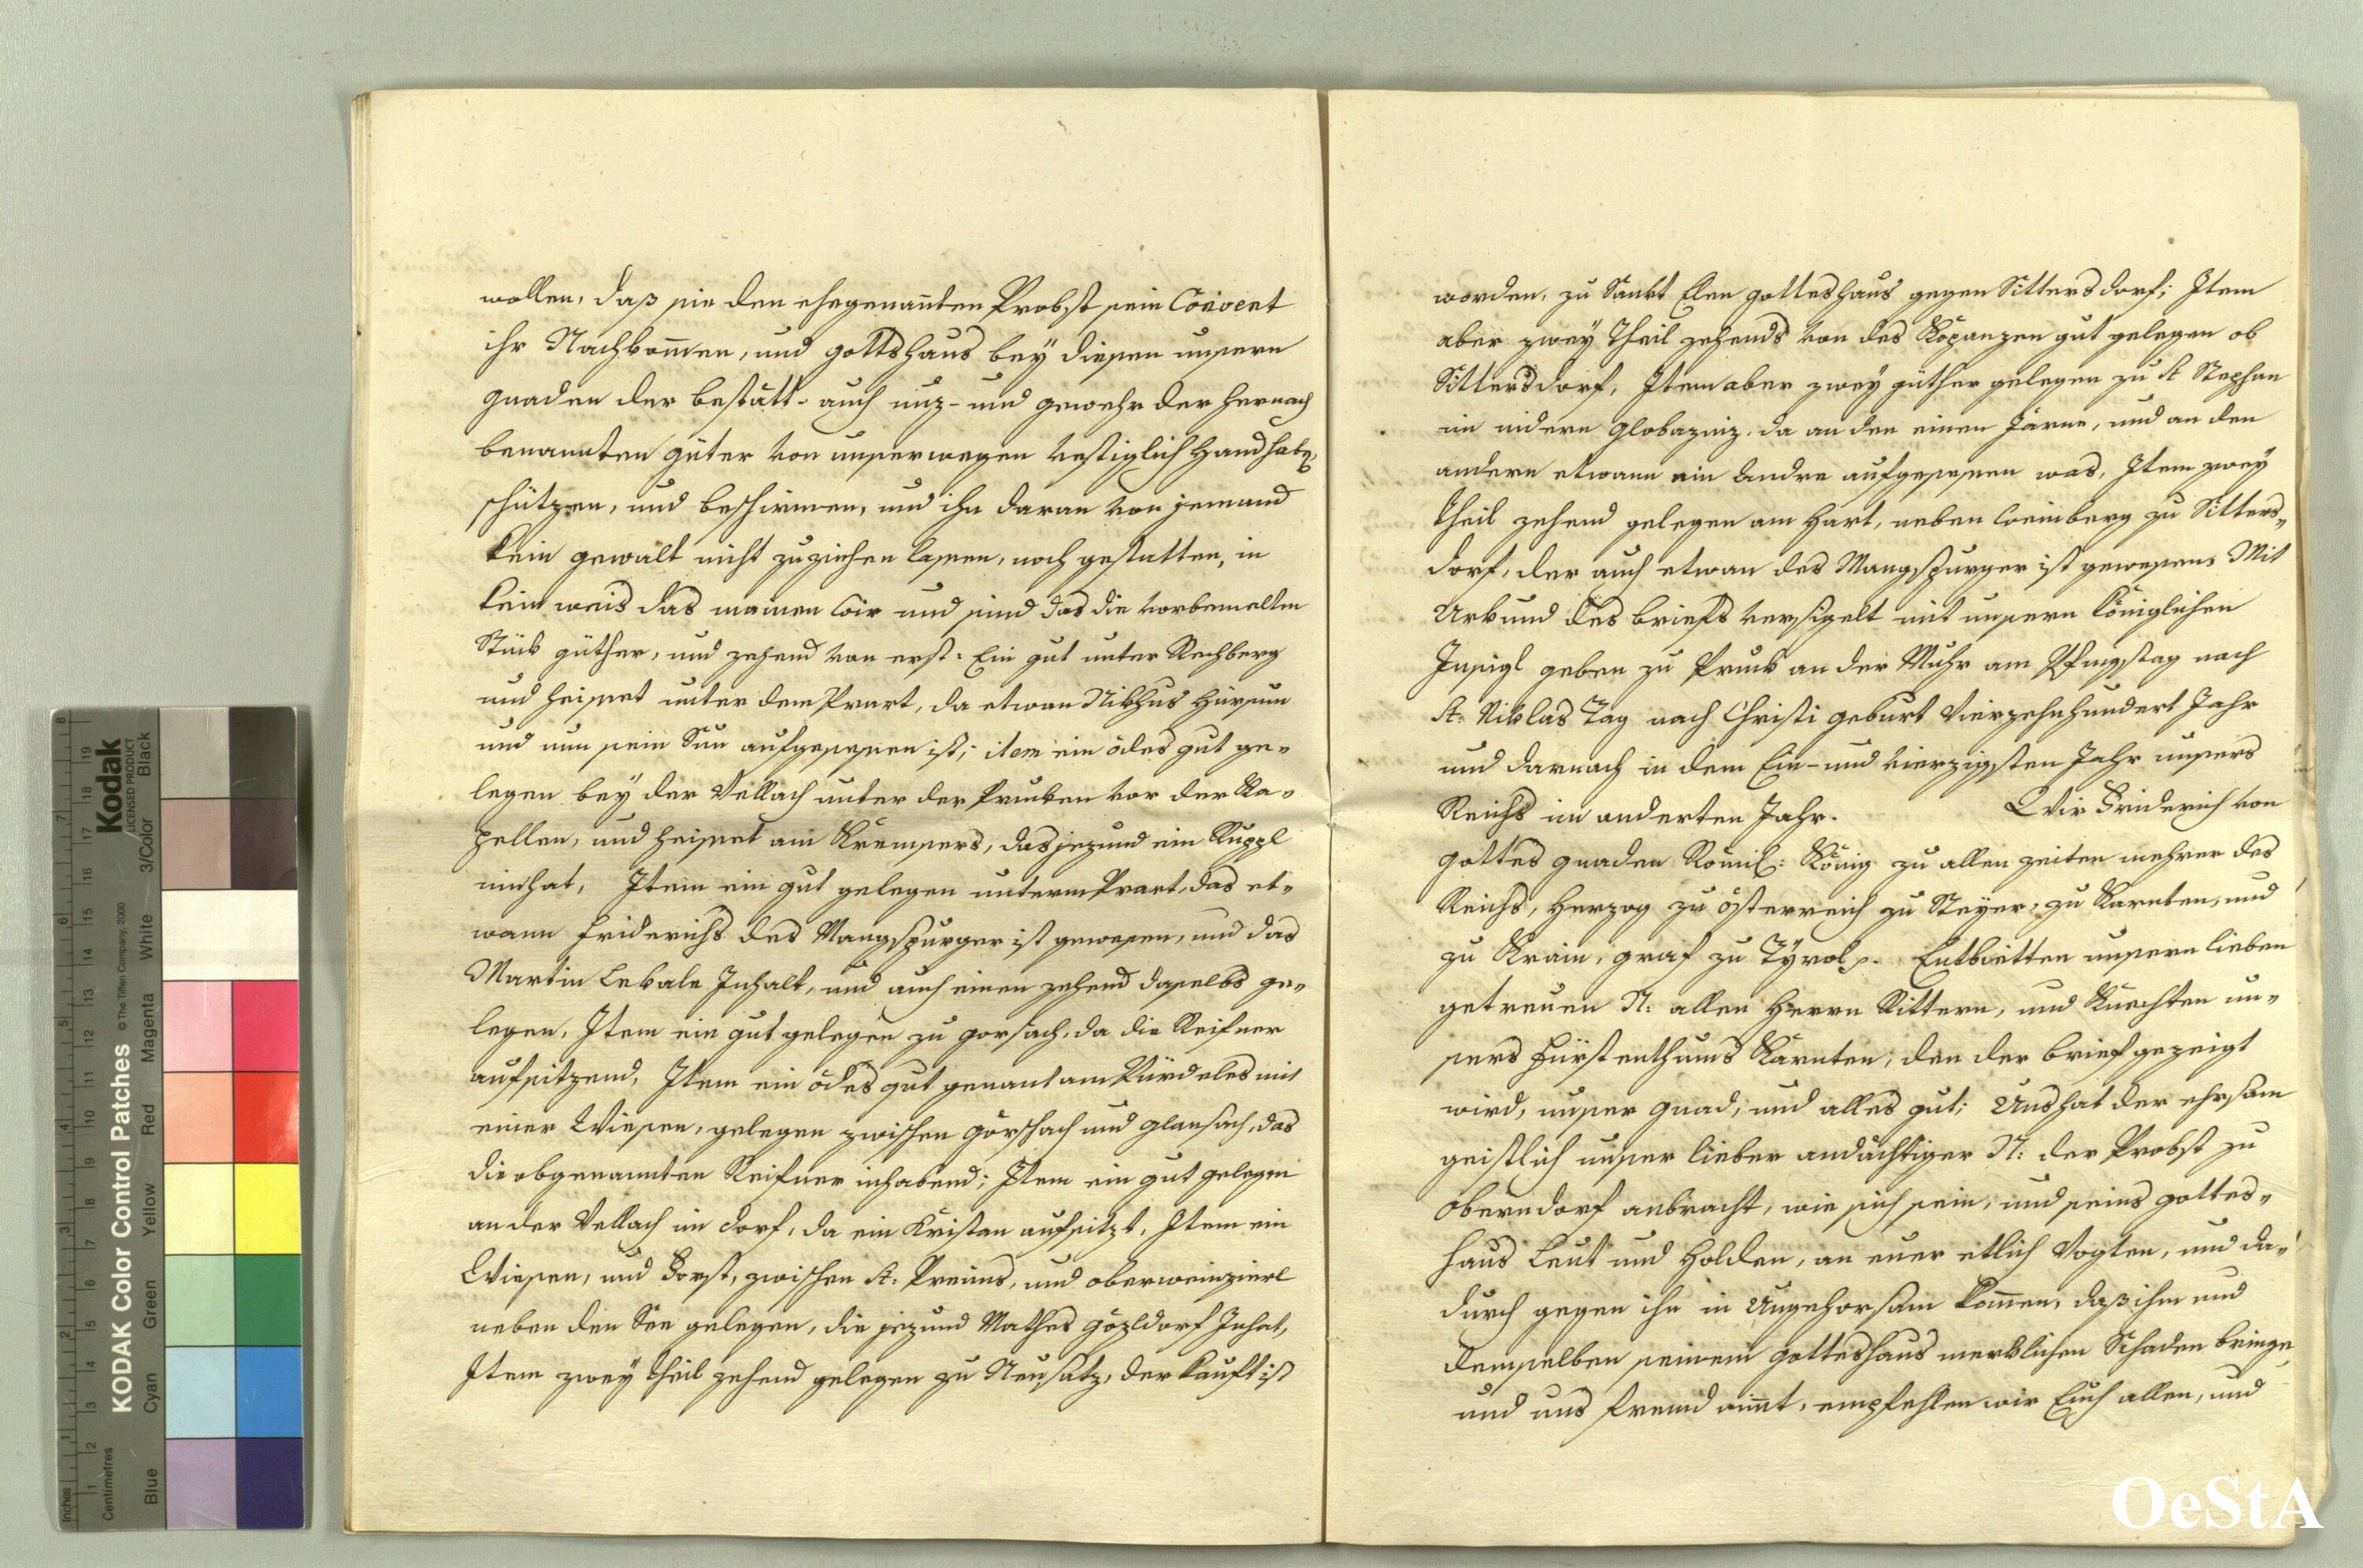 wollen, daß sie den ehegenannten Probst sein Convent
ihr Nachkommen, und gottshaus bey diesen unsern
gnaden der bestätt- auch nuz- und gewehr der hernach
benannten güter von unserwegen vestiglich handhaben,
schützen, und beschirmen, und ihn daran von jemand
kein gewalt nicht zuziehen lassen, noch gestatten, in
kein weis das mainen wir und sind das die vorbemelten
Stück güther, und zehend von erst. Ein gut unter Rechberg
und heisset unter dem Prart, da etwan Niklus
und nun sein Sun aufgesessen ist; item ein ödes gut ge-
legen bey der Vellach unter der Prucken vor der Ka-
pellen, und heisset am Krempers, das jezund ein Ruppl
innhat, Item ein gut gelegen unterm Prart, das et-
wann Friderichs des Mangspurger ist gewesen, und das
Martin Lekale Inhalt, und auch einen zehend daselbs ge-
legen, Item ein gut gelegen zu gorsach, da die Reifner
aufsitzend, Item ein ödes gut genant am Pürdeles mit
einer Wiesen, gelegen zwischen görschach und glansach, das
die obgenannten Reifner inhabend; Item ein gut gelegen
an der Vellach im dorf, da ein Kristan aufsitzt, Item ein
Wiesen, und Forst, zwischen St. Preims, und oberweinzierl
neben den See gelegen, die jezund Mathes gözldorf Inhat,
Item zwey theil zehend gelegen zu Neusatz, der kauft ist
worden, zu Sankt Elen gotteshaus gegen Sittersdorf; Item
aber zwey theil zehends von des Kopanzen gut gelegen ob
Sittersdorf, Item aber zwey güther gelegen zu St Stephan
im nidern globazniz, da an den einen Järne, und an den
andern etwann ein Andre aufgesessen was, Item zwey
theil zehend gelegen am hart, neben weinberg zu Sitters-
dorf, der auch etwan des Mangspurger ist gewesen. Mit
Urkund des briefs versigelt mit unsern königlichen
Insigl geben zu Pruck an der Muhr am Pfingstag nach
St. Niklas Tag nach Christi geburt Vierzehnhundert Jahr
und darnach in dem Ein- und vierzigsten Jahr unsers
Reichs im anderten Jahr. Wir Friderich von
gottes gnaden Römis: König zu allen zeiten mehrer des
Reichs, Herzog zu österreich zu Steyer, zu Kärnten, und
zu Krain, graf zu Tyrol p. Entbietten unsern lieben
getreuen N: allen Herrn Rittern, und Knechten un-
sers Fürstenthums Kärnten, den der brief gezeigt
wird, unser gnad, und alles gut; Uns hat der ehrsam
geistlich unser lieber andächtiger N: der Probst zu
oberndorf anbracht, wie sich sein, und seins gottes-
haus Leut und Holden, an euer etlich Vogten, und da-
durch gegen ihn in Ungehorsam kommen, daß ihm und
demselben seinem gotteshaus merklichen Schaden bringe,
und uns fremd nimt, empfehlen wir Euch allen, und
KODAK Color Control Patches
© The Tiffen Company, 2000
Kodak
LICENSED PRODUCT
Inches
Centimetres
Blue
Cyan
Green
Yellow
Red
Magenta
White
3/Color
Black
OeStA